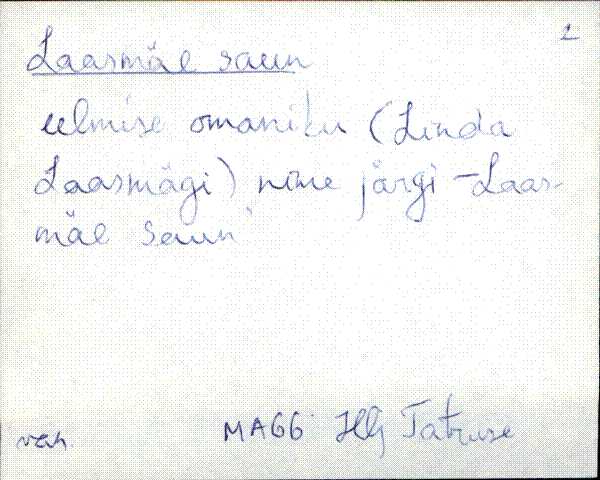 2
Laasmäe saun
eelmise omaniku (Linda
Laasmägi) nime järgi - Laas-
mäe saun
van. MAGG Tatruse